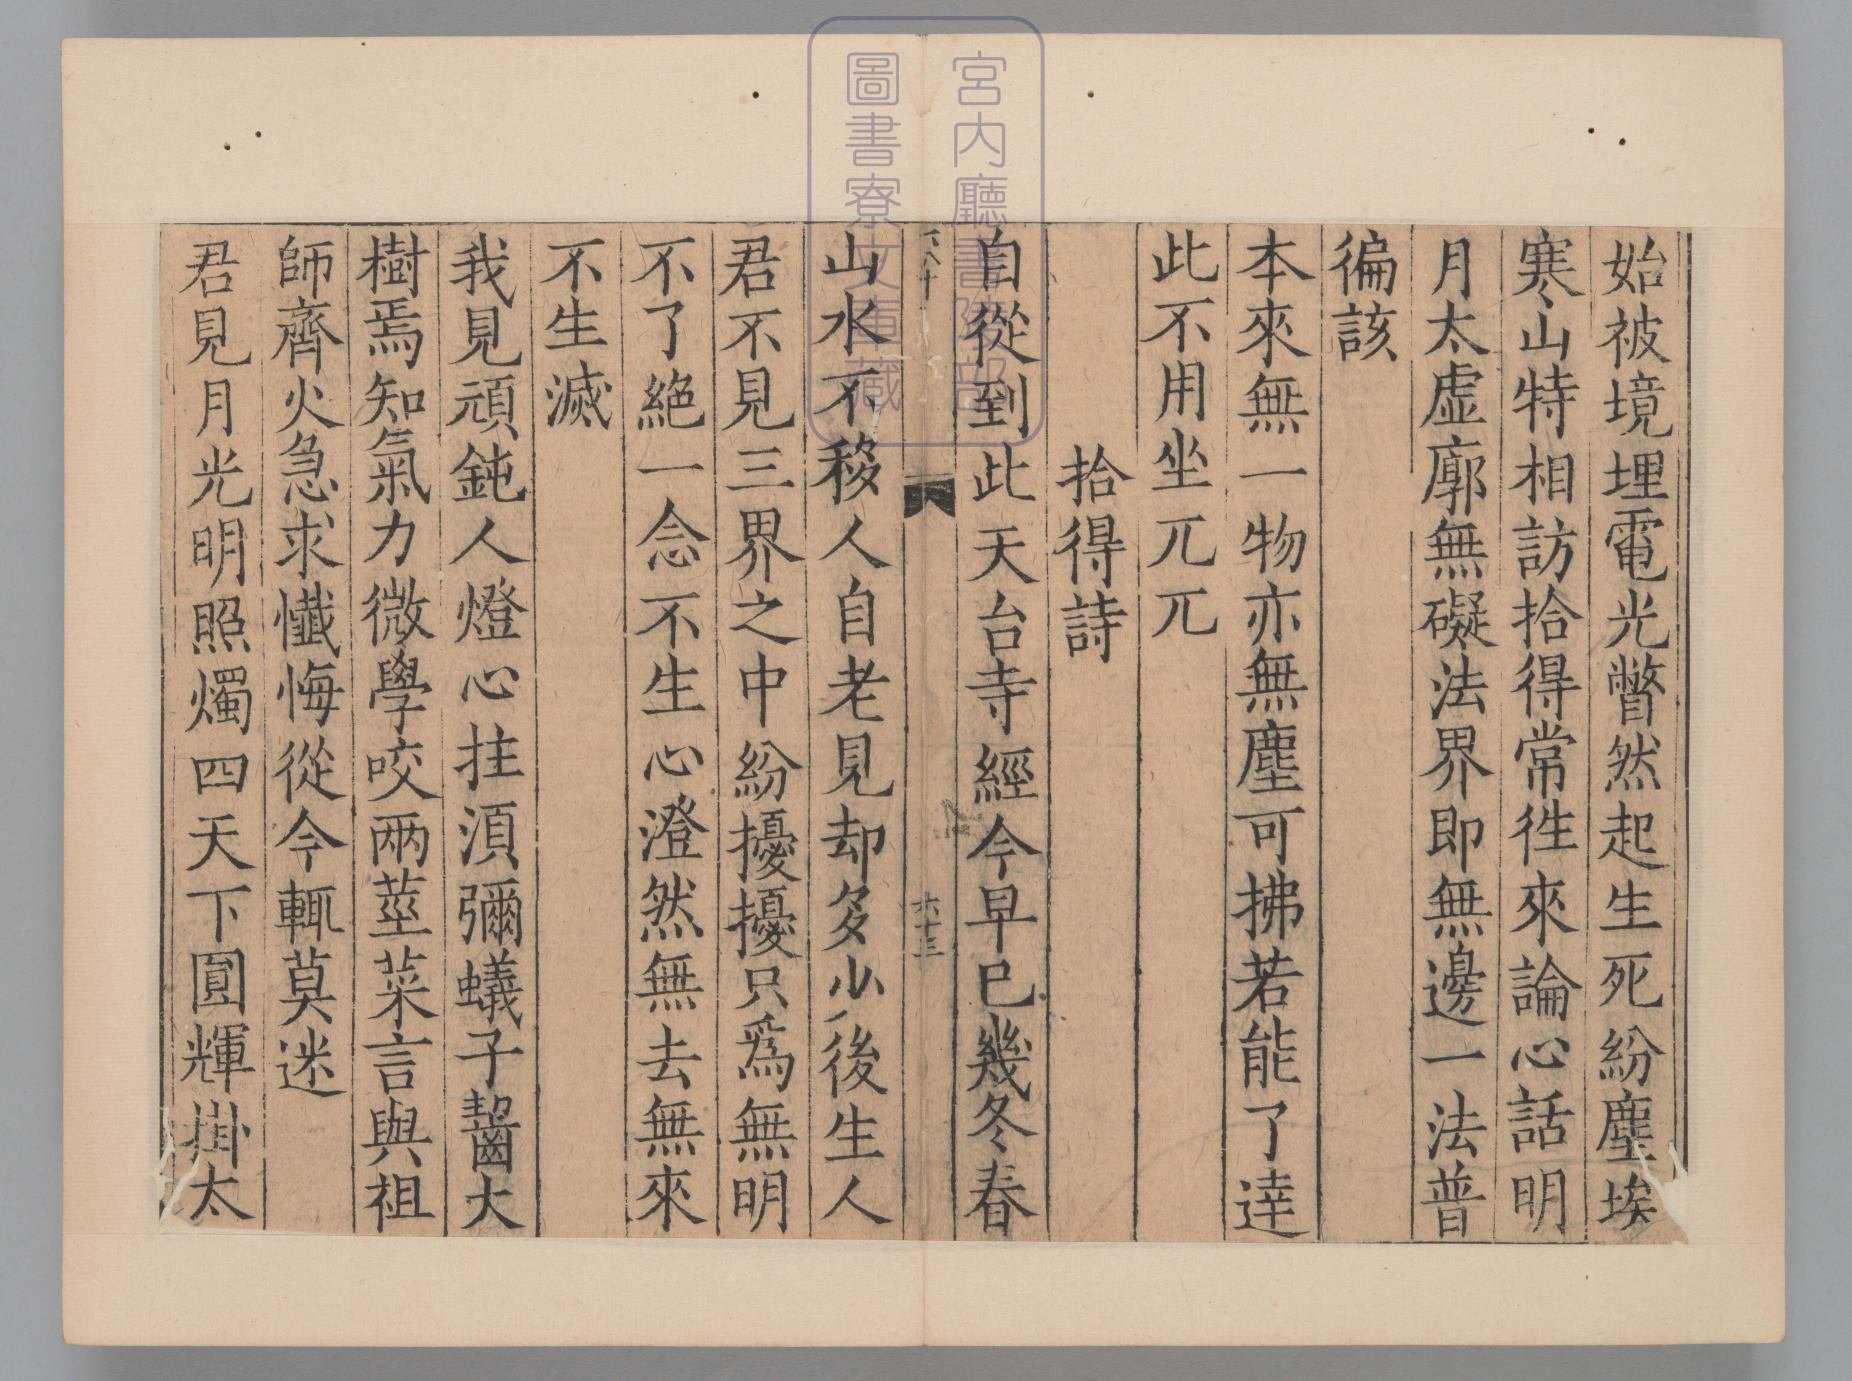 始被境埋電光瞥然起生死紛塵埃
寒山特相訪拾得常徃來論心話明
月太虛廓無礙法界即無邊一法普
徧該
本來無一物亦無塵可拂若能了達
此不用坐兀兀
拾得詩
自從到此天台寺經今早已幾冬春
六十三
山水不移人自老見却多少後生人
君不見三界之中紛擾擾只爲無明
不了絕一念不生心澄然無去無來
不生滅
我見頑鈍人燈心拄湏彌蟻子齧大
樹焉知氣力微學咬兩莖菜言與祖
師齊火急求懺悔從今輒莫迷
君見月光明照燭四天下圓輝掛太
宮内廳書陵部
圖書寮文庫藏